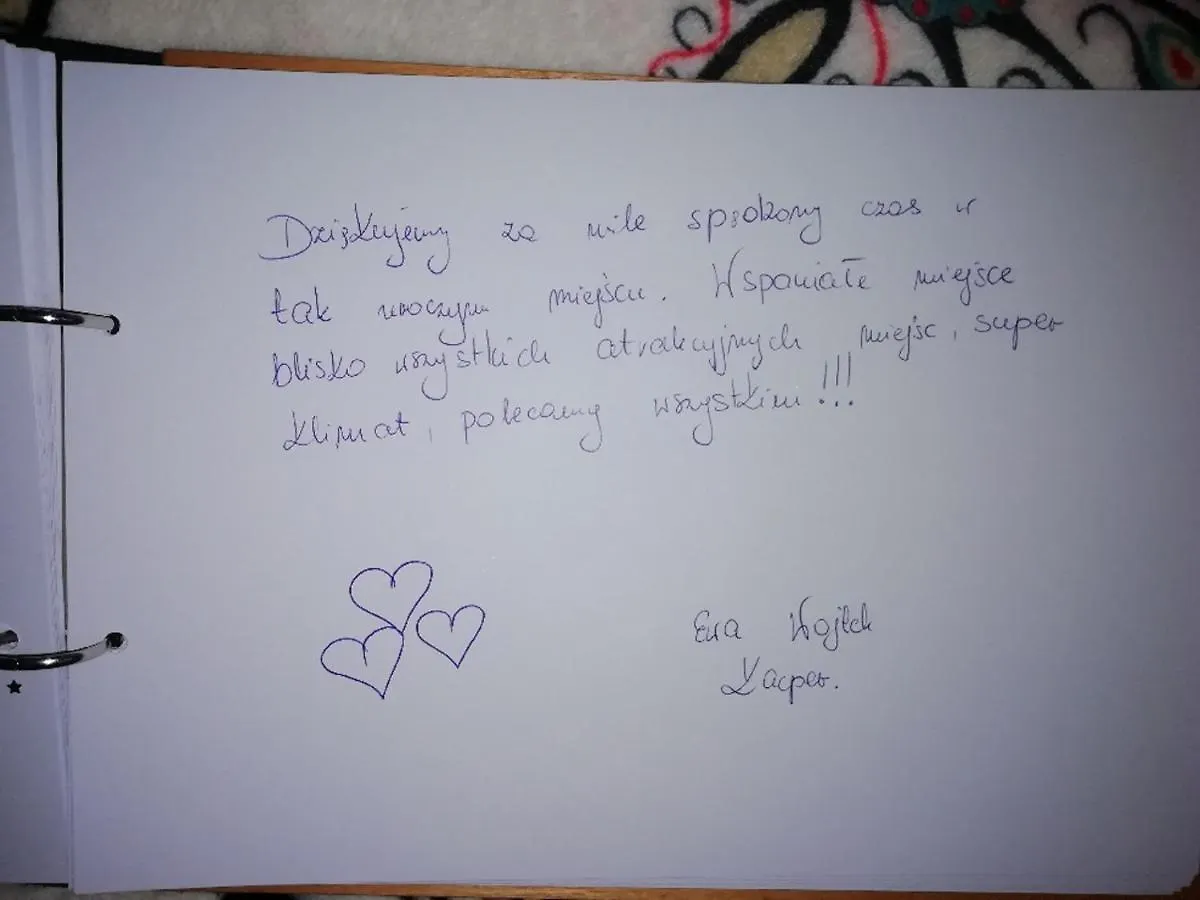 Dziękujemy za mile spędzony czas w
tak uroczym miejscu. Wspaniałe miejsce
blisko wszystkich atrakcyjnych miejsc, super
klimat, polecamy wszystkim!!!
Ewa Wojtek
Kacper.